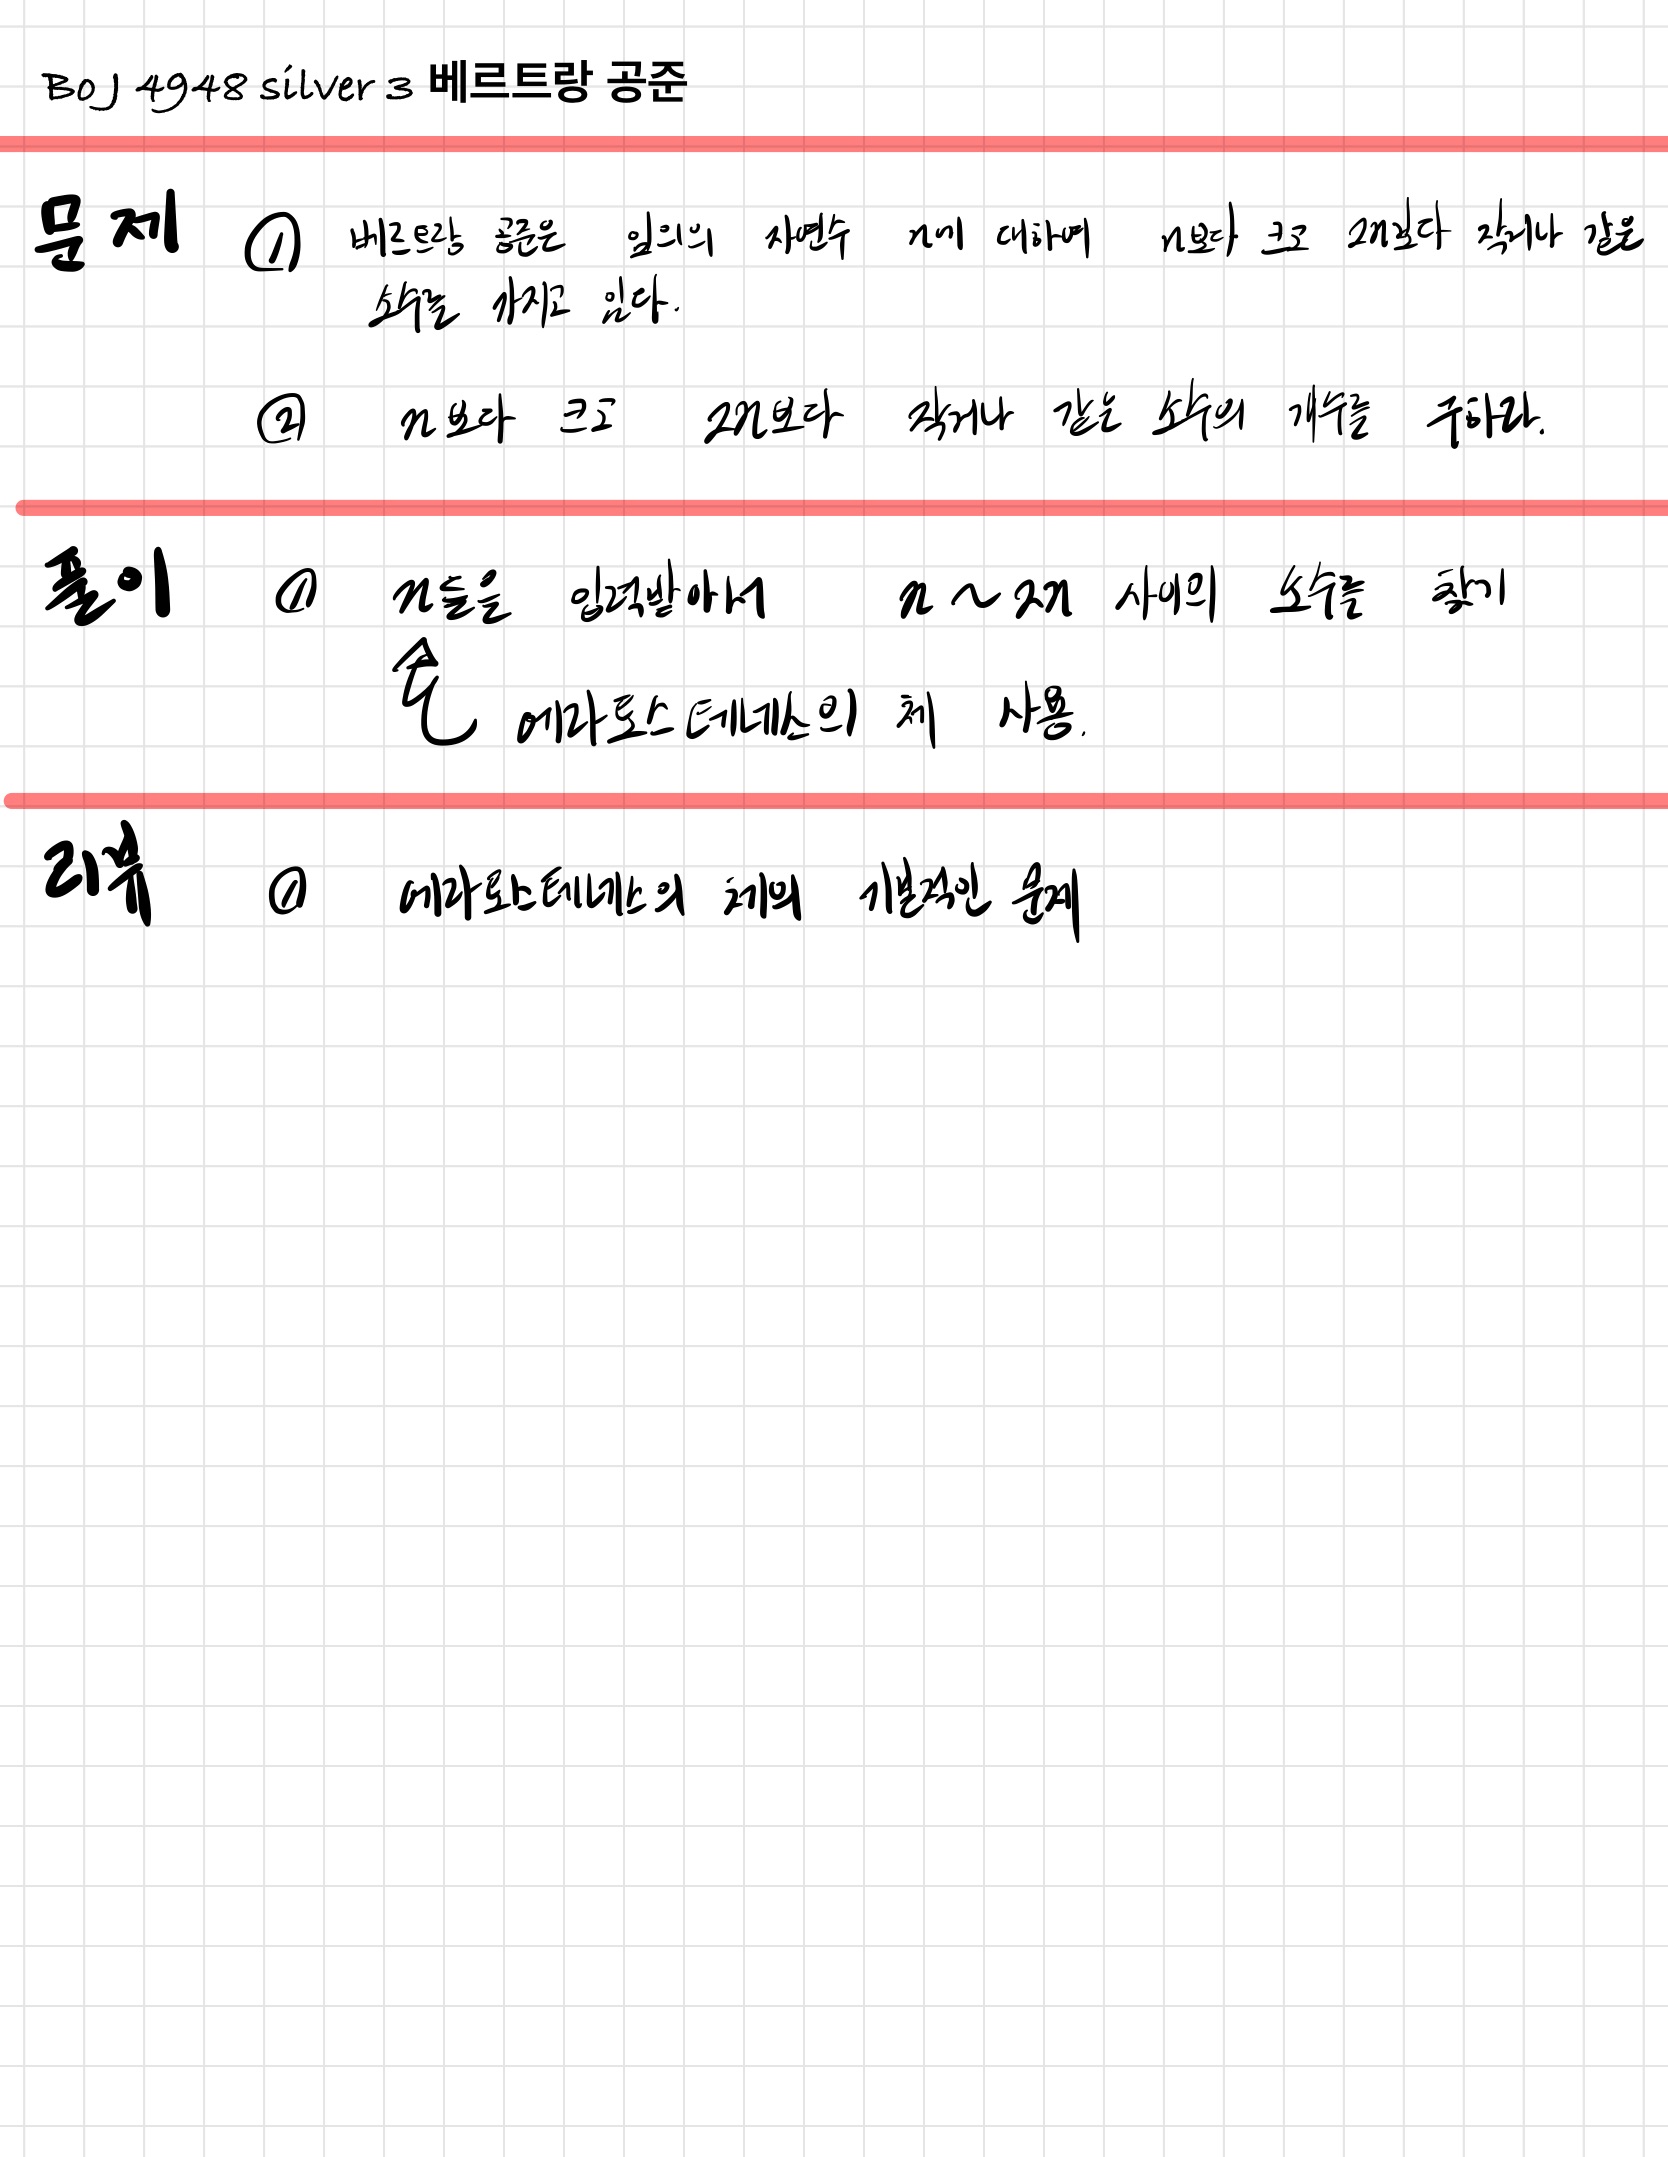 BOJ 4948 silver 3 베르트랑 공준
문제 ① 베르트랑 공준은 임의의 자연수 n에 대하여 n보다 크고 2n보다 작거나 같은
소수를 가지고 있다.
② n보다 크고 2n보다 작거나 같은 소수의 개수를 구하라.
풀이 ① n들을 입력받아서 n ~ 2n 사이의 소수를 찾기
에라토스테네스의 체 사용.
리뷰 ① 에라토스테네스의 체의 기본적인 문제